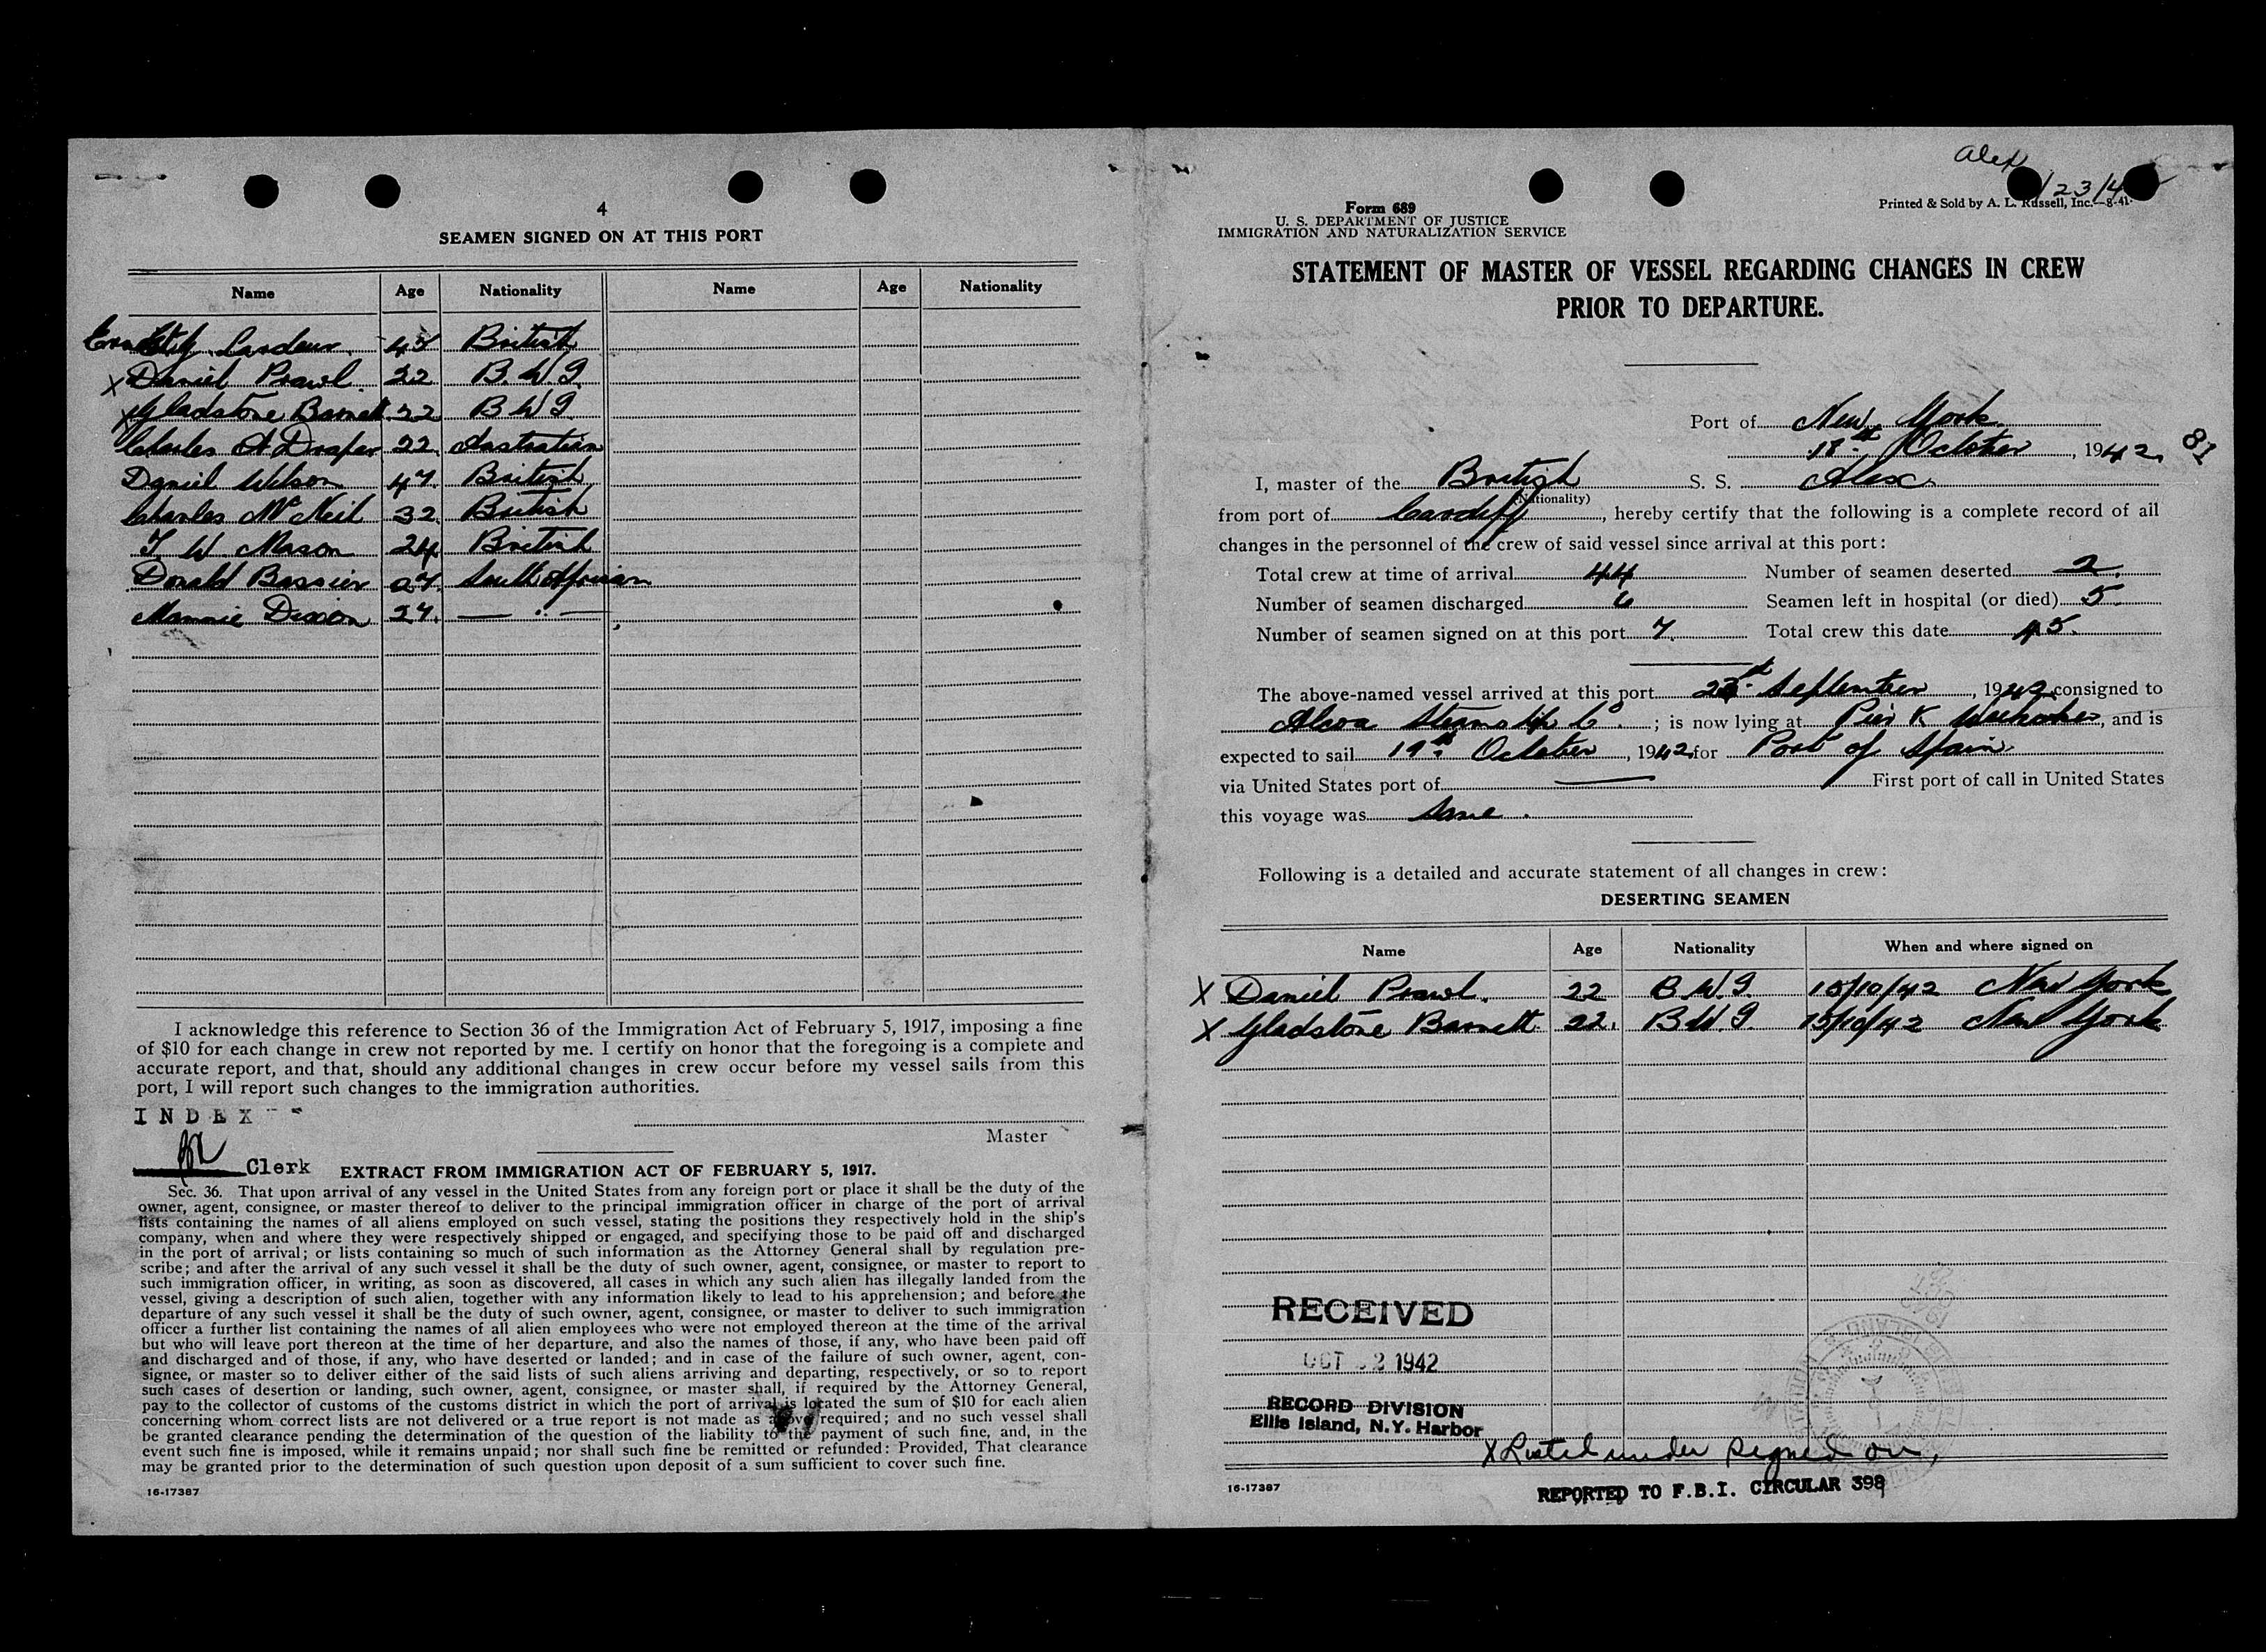 4
SEAMEN SIGNED ON AT THIS PORT
Name Age Nationality Name Age Nationality
45 British
X Daniel Prawl. 22 B.W.I.
X Gladstone Barnett 22 B W I
Charles A Draper 22. Australian
Daniel Wilson 47 British
Charles McNeil 32 British
J W Mason 24 British
Donald 27. South African
Mannie Dixon 27. — " —
I acknowledge this reference to Section 36 of the Immigration Act of February 5, 1917, imposing a fine
of $10 for each change in crew not reported by me. I certify on honor that the foregoing is a complete and
accurate report, and that, should any additional changes in crew occur before my vessel sails from this
port, I will report such changes to the immigration authorities.
INDEX
Master
Clerk
EXTRACT FROM IMMIGRATION ACT OF FEBRUARY 5, 1917.
Sec. 36. That upon arrival of any vessel in the United States from any foreign port or place it shall be the duty of the
owner, agent, consignee, or master thereof to deliver to the principal immigration officer in charge of the port of arrival
lists containing the names of all aliens employed on such vessel, stating the positions they respectively hold in the ship's
company, when and where they were respectively shipped or engaged, and specifying those to be paid off and discharged
in the port of arrival; or lists containing so much of such information as the Attorney General shall by regulation pre-
scribe; and after the arrival of any such vessel it shall be the duty of such owner, agent, consignee, or master to report to
such immigration officer, in writing, as soon as discovered, all cases in which any such alien has illegally landed from the
vessel, giving a description of such alien, together with any information likely to lead to his apprehension; and before the
departure of any such vessel it shall be the duty of such owner, agent, consignee, or master to deliver to such immigration
officer a further list containing the names of all alien employees who were not employed thereon at the time of the arrival
but who will leave port thereon at the time of her departure, and also the names of those, if any, who have been paid off
and discharged and of those, if any, who have deserted or landed; and in case of the failure of such owner, agent, con-
signee, or master so to deliver either of the said lists of such aliens arriving and departing, respectively, or so to report
such cases of desertion or landing, such owner, agent, consignee, or master shall, if required by the Attorney General,
pay to the collector of customs of the customs district in which the port of arrival is located the sum of $10 for each alien
concerning whom correct lists are not delivered or a true report is not made as above required; and no such vessel shall
be granted clearance pending the determination of the question of the liability to the payment of such fine, and, in the
event such fine is imposed, while it remains unpaid; nor shall such fine be remitted or refunded: Provided, That clearance
may be granted prior to the determination of such question upon deposit of a sum sufficient to cover such fine.
16-17387
Alex
/23/4
Printed & Sold by A. L. Russell, Inc.—8-41
Form 689
U. S. DEPARTMENT OF JUSTICE
IMMIGRATION AND NATURALIZATION SERVICE
STATEMENT OF MASTER OF VESSEL REGARDING CHANGES IN CREW
PRIOR TO DEPARTURE.
Port of New York
18th October, 1942. 81
I, master of the British S. S. Alex.
(Nationality)
from port of Cardiff, hereby certify that the following is a complete record of all
changes in the personnel of the crew of said vessel since arrival at this port:
Total crew at time of arrival 44 Number of seamen deserted 2.
Number of seamen discharged 6 Seamen left in hospital (or died) 5.
Number of seamen signed on at this port 7. Total crew this date 45.
The above-named vessel arrived at this port September, 1942 consigned to
Alcoa Steamship Co.; is now lying at Pier K Weehawken, and is
expected to sail 19th October, 1942 for Port of Spain.
via United States port of — First port of call in United States
this voyage was same.
Following is a detailed and accurate statement of all changes in crew:
DESERTING SEAMEN
Name Age Nationality When and where signed on
X Daniel Prawl. 22 B.W.I. 15/10/42 New York
X Gladstone Barnett 22. B.W.I 15/10/42 New York
RECEIVED
OCT 2 1942
RECORD DIVISION
Ellis Island, N.Y. Harbor
X Listed under signed on,
16-17387
REPORTED TO F.B.I. CIRCULAR 398